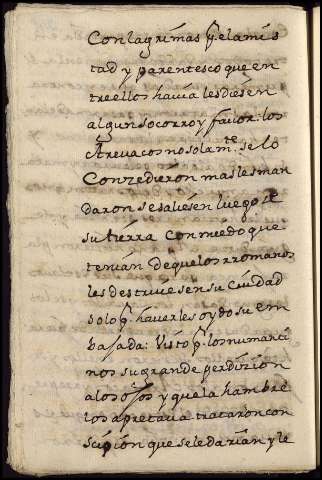 Con lagrimas y el amis
tad y parentesco que en
tre ellos havia les diesen
algun socorro y favor: los
Arevacos no solam.te se lo
Conzedieron mas les man
daron se saliesen luego de
su tierra con miedo que
tenian de que los rromanos
les destruiesen su Ciudad
solo p.r haverles oydo su em
bajada: Visto p.r los numanti
nos su grande perdizion
a los ojos y que la hambre
los apretava trataron con
scipion que se le darian y le